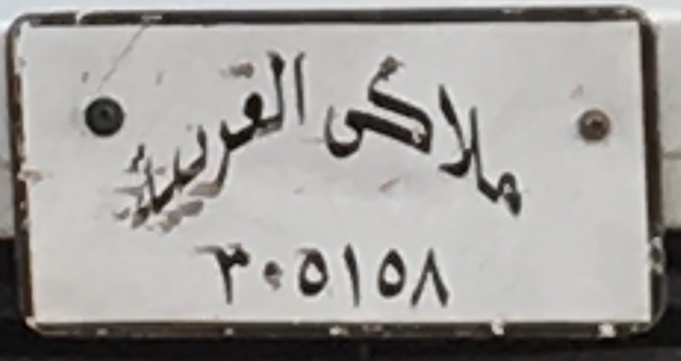 ملاكى الغربية
٣٠٥١٥٨